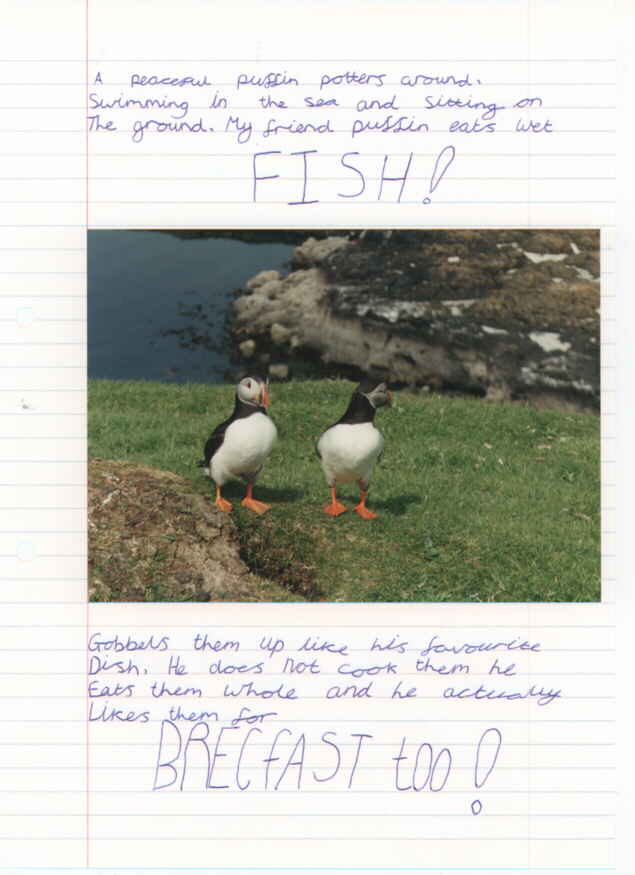 A peaceful puffin potters around.
Swimming in the sea and sitting on
The ground. My friend puffin eats wet
FISH!
Gobbels them up like his favourite
Dish. He does not cook them he
Eats them whole and he actually
Likes them for
BRECFAST too!